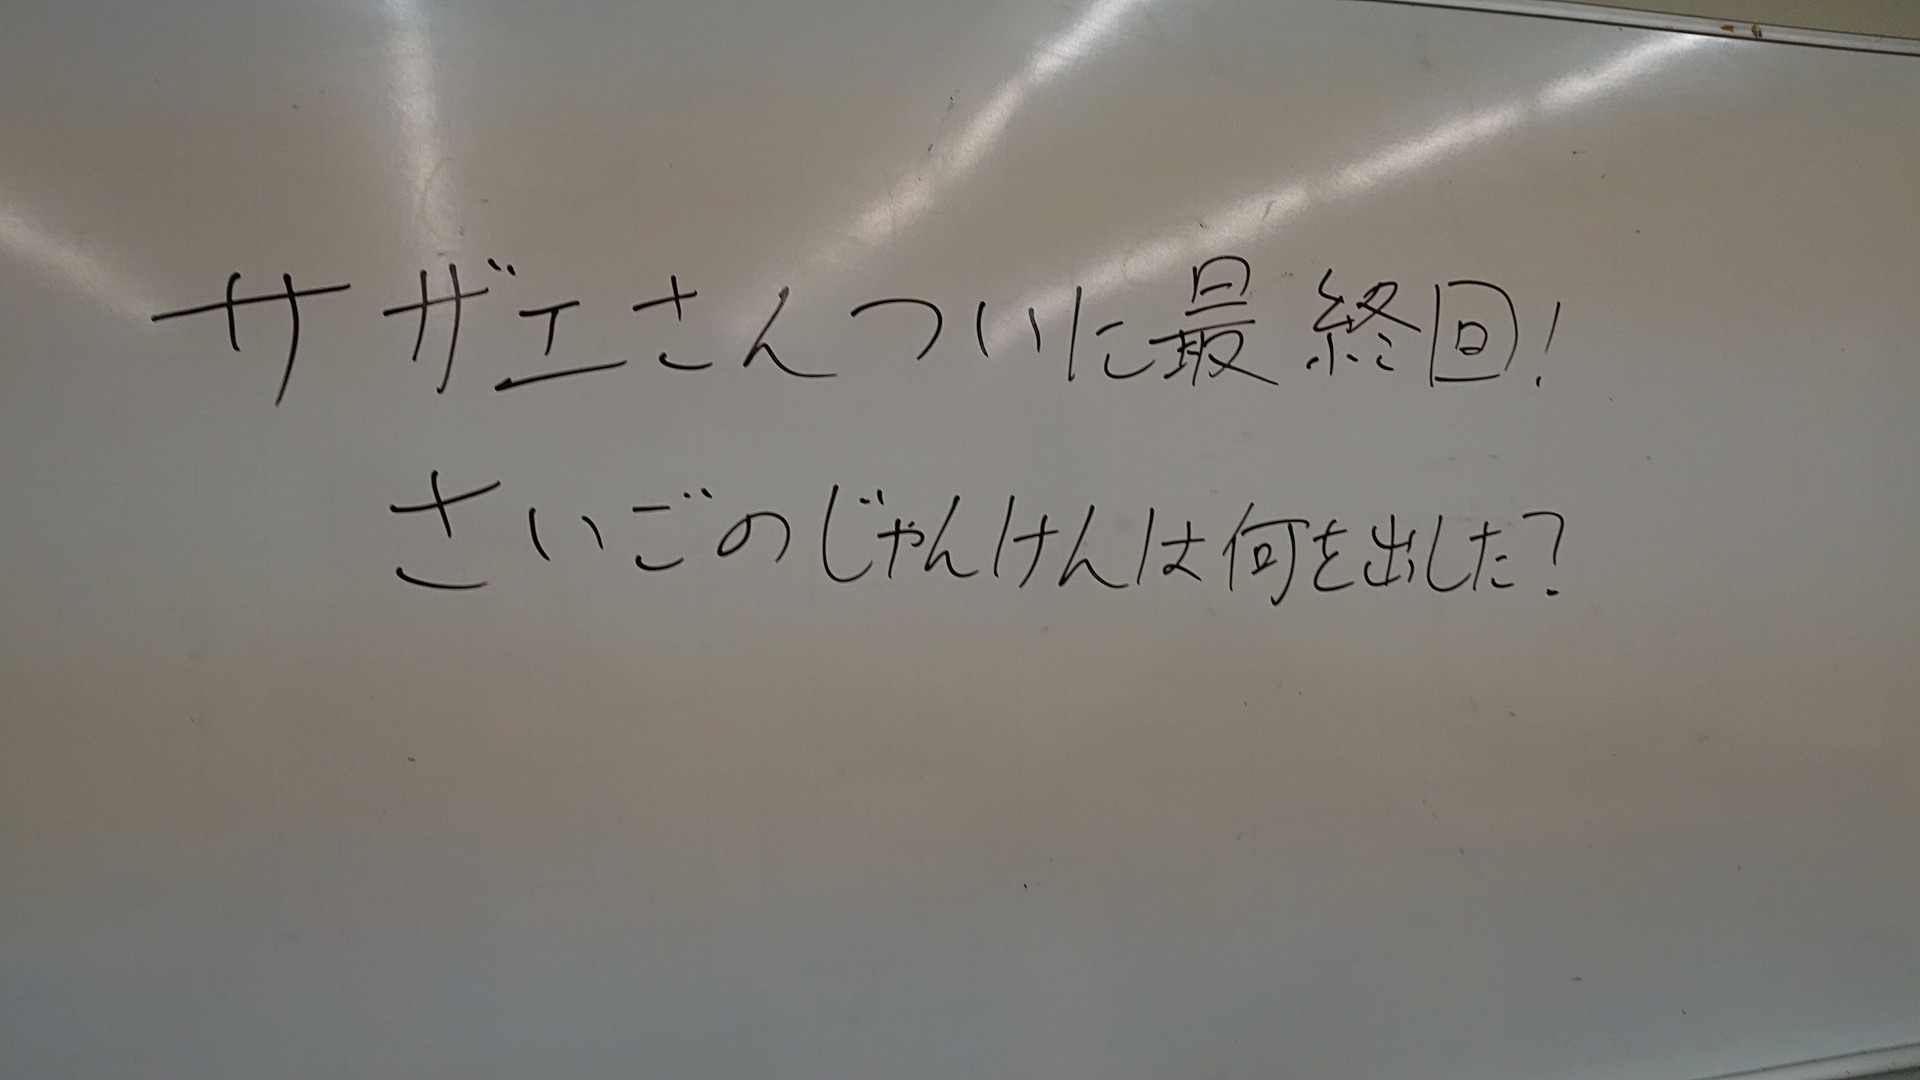 サザエさんついに最終回!
さいごのじゃんけんは何を出した?